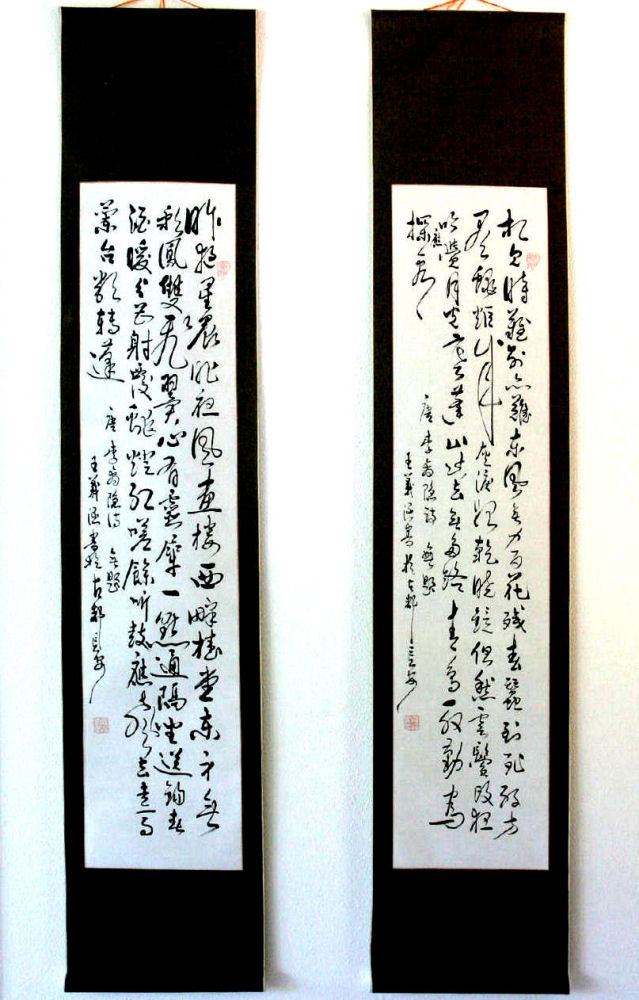 相見時難別亦難東風無力百花殘春蠶到死絲方
盡蠟炬成灰淚始乾曉鏡但愁雲鬢改夜
吟應覺月光寒蓬山此去無多路青鳥殷勤為
探看
唐李商隱詩 無題
王義書於古都長安
昨夜星辰昨夜風畫樓西畔桂堂東身無
彩鳳雙飛翼心有靈犀一點通隔座送鉤春
酒暖分曹射覆蠟燈紅嗟餘听鼓應官去走馬
蘭台類轉蓬
唐李商隱詩 無題
王義書於古都長安